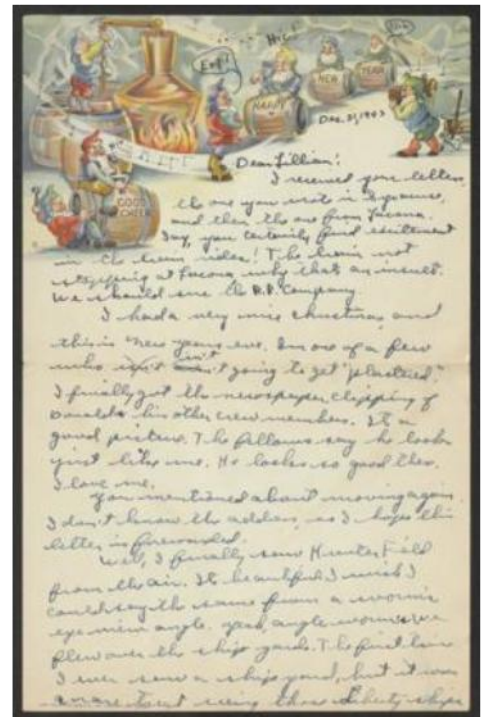 Hic!
Hic
Eep!
HAPPY
NEW
YEAR
Dec. 31, 1943
GOOD
CHEER
Dear Lillian:
I received your letters,
the one you wrote in Syracuse,
and then the one from Lacona.
Say, you certainly find excitement
in the train rides! The train not
stopping at Lacona why thats an insult.
We should sue the R.R. Company.
I had a very nice christmas, and
this is new years eve. Im one of a few
who ain't going to get "plastered".
I finally got the newspaper clipping of
Donald & his other crew members. Its a
good picture. The fellows say he looks
just like me. He looks so good then.
I love me.
You mentioned about moving again.
I don't know the address, so I hope this
letter is forwarded.
Well, I finally saw Hunter Field
from the air. Its beautiful. I wish I
could say the same from a worm's
eye view angle. yeah, angle worm. We
flew over the ship yards. The first time
I ever saw a ship yard, but it was
seeing those Liberty ships